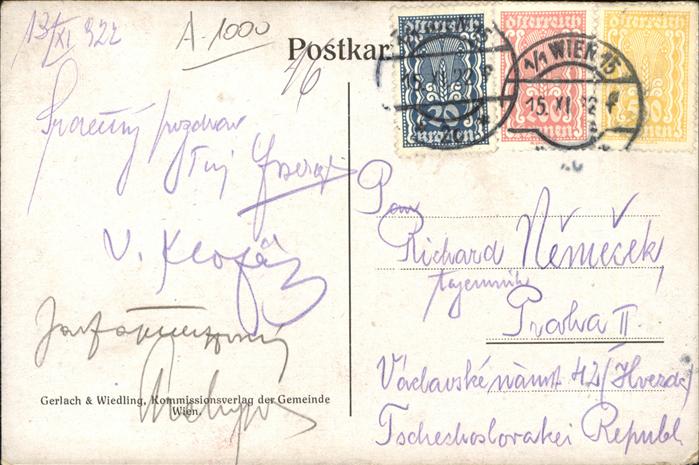 13/XI 922
A-1000
Postkar
Srdečný pozdrav
Tvůj
V. Klofáč
Gerlach & Wiedling, Kommissionsverlag der Gemeinde
Wien.
österreich
20
Kronen
österreich
Kronen
1/1 WIEN 15
15. XI 22
Pan
Richard Němeček,
tajemník
Praha II.
Václavské náměst 42/Hvězda/
Tschechoslovakei Republ.